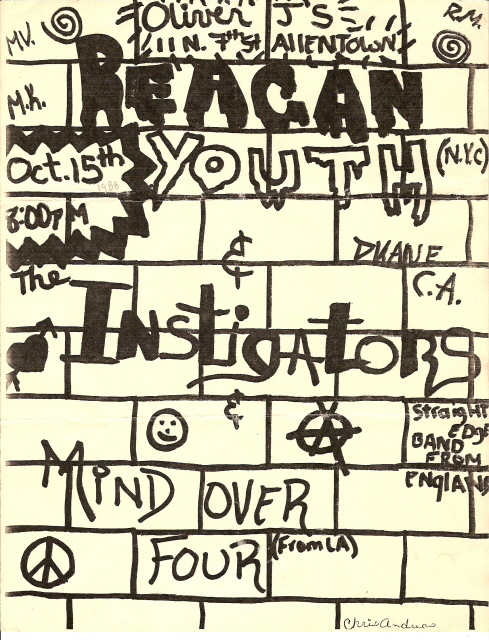 Oliver J'S
11 N. 7th St ALLENTOWN
MV.
R.M.
M.K.
REAGAN
Oct. 15th
1988
8:00PM
YOUTH
(N.Y.C)
&
DUANE
C.A.
The
INSTIGATORS
Straight
EDGE
BAND
FROM
ENGLAND
&
MIND OVER
FOUR
(From LA)
Chris Andrews